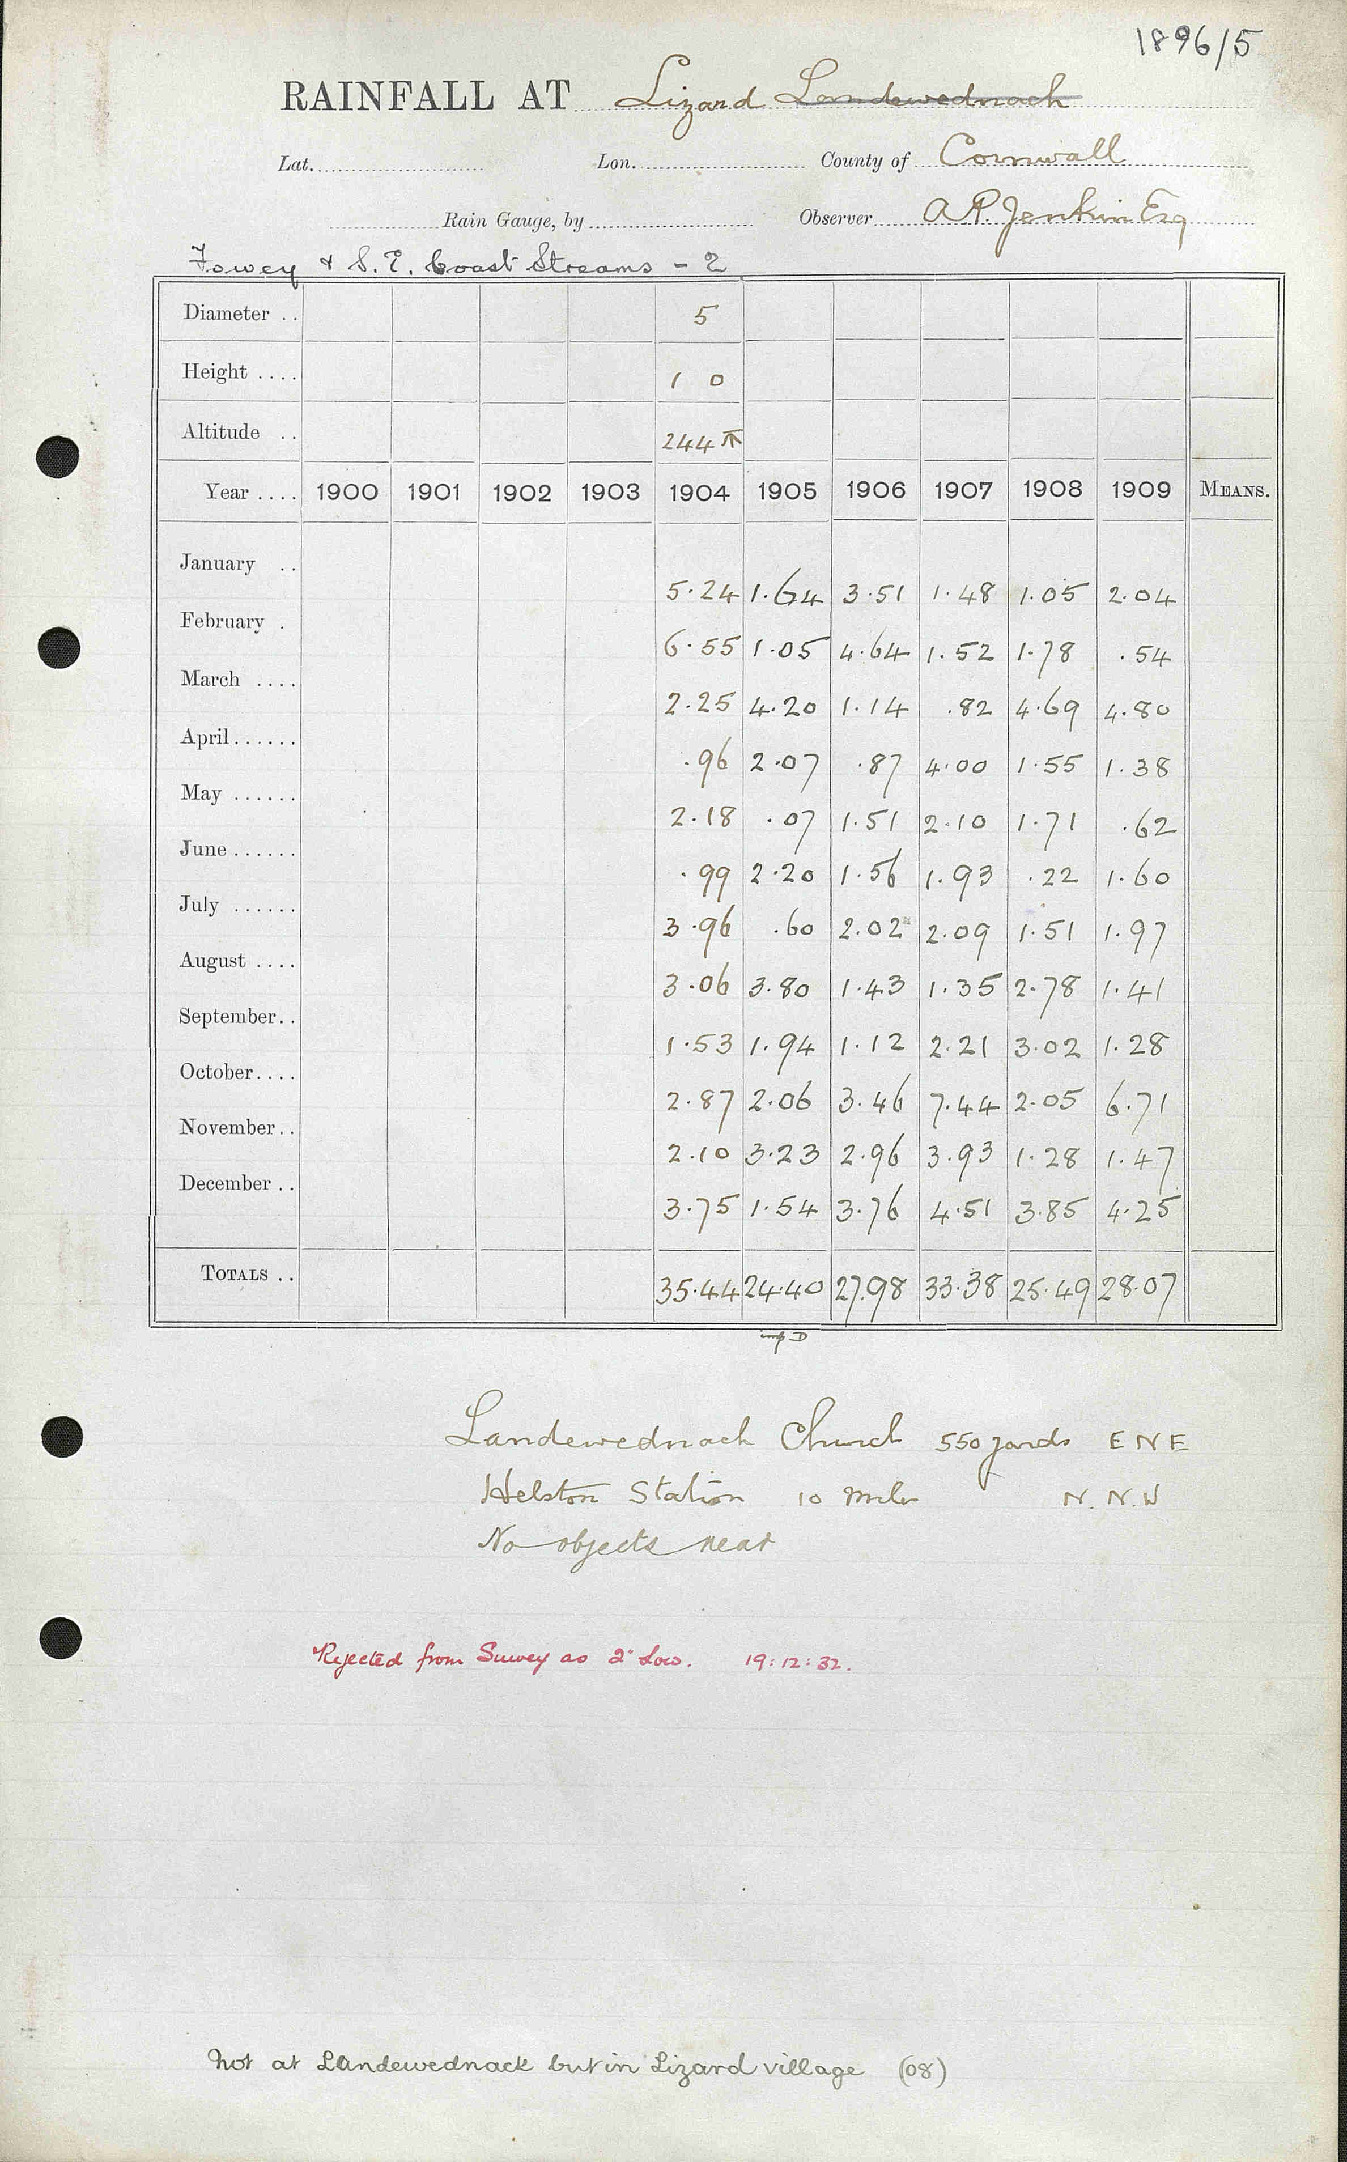 1896/5
RAINFALL AT Lizard Landewednack
Lat. Lon. County of Cornwall
Rain Gauge, by Observer A.P. Jenkin Esq
Fowey & S.E. Coast Streams - 2
Diameter .. 5
Height .... 1 0
Altitude .. 244
Year .... 1900 1901 1902 1903 1904 1905 1906 1907 1908 1909 MEANS.
January .. 5.24 1.64 3.51 1.48 1.05 2.04
February . 6.55 1.05 4.64 1.52 1.78 .54
March .... 2.25 4.20 1.14 .82 4.69 4.80
April...... .96 2.07 .87 4.00 1.55 1.38
May ...... 2.18 .07 1.51 2.10 1.71 .62
June...... .99 2.20 1.56 1.93 .22 1.60
July ...... 3.96 .60 2.02 2.09 1.51 1.97
August .... 3.06 3.80 1.43 1.35 2.78 1.41
September.. 1.53 1.94 1.12 2.21 3.02 1.28
October.... 2.87 2.06 3.46 7.44 2.05 6.71
November.. 2.10 3.23 2.96 3.93 1.28 1.47
December .. 3.75 1.54 3.76 4.51 3.85 4.25
TOTALS .. 35.44 24.40 27.98 33.38 25.49 28.07
Landewednack Church 550 yards E N E
Helston Station 10 miles N. N. W
No objects near
Rejected from Survey as 2" low. 19:12:32.
Not at Landewednack but in Lizard village (08)